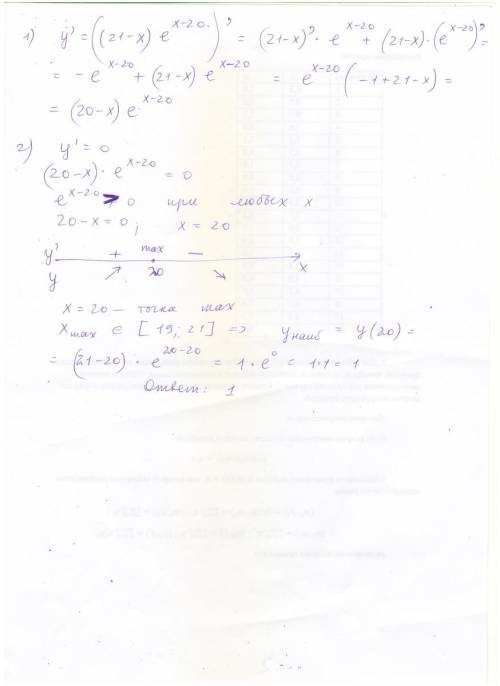 1) y' = ((21-x) e^{x-20})' = (21-x)' · e^{x-20} + (21-x) · (e^{x-20})' =
= -e^{x-20} + (21-x) e^{x-20} = e^{x-20} (-1+21-x) =
= (20-x) e^{x-20}
2) y' = 0
(20-x) · e^{x-20} = 0
e^{x-20} > 0 при любых x
20-x = 0; x = 20
y' + max −
y ↗ 20 ↘ x
x = 20 – точка max
x_{max} ∈ [19; 21] => y_{наиб} = y(20) =
= (21-20) · e^{20-20} = 1 · e^0 = 1·1 = 1
Ответ: 1